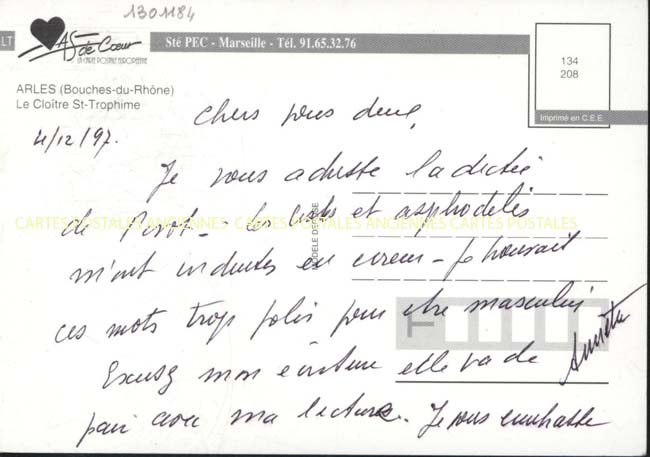 1301184
LT
As de Cœur
LA CARTE POSTALE EUROPEENNE
Sté PEC - Marseille - Tél. 91.65.32.76
134
208
Imprimé en C.E.E.
ARLES (Bouches-du-Rhône)
Le Cloître St-Trophime
4/12/97.
Chers vous deux,
Je vous adresse la dictée
de Pivot - les et asphodèles
MODELE DEPOSE
CARTES POSTALES ANCIENNES CARTES POSTALES ANCIENNES CARTES POSTALES
m'ont induites en erreur - Je trouvait
ces mots trop jolis pour être masculin
Excusez mon écriture elle va de
pair avec ma lecture. Je vous embrasse